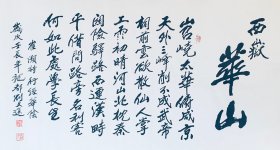 西嶽
華山
岧嶢太華俯咸京
天外三峰削不成武帝
祠前雲欲散仙人掌
上雨初晴河山北枕秦
関險驛路西連漢畤
平借問路旁名利客
何如此處學長生
崔顥詩行經華陰